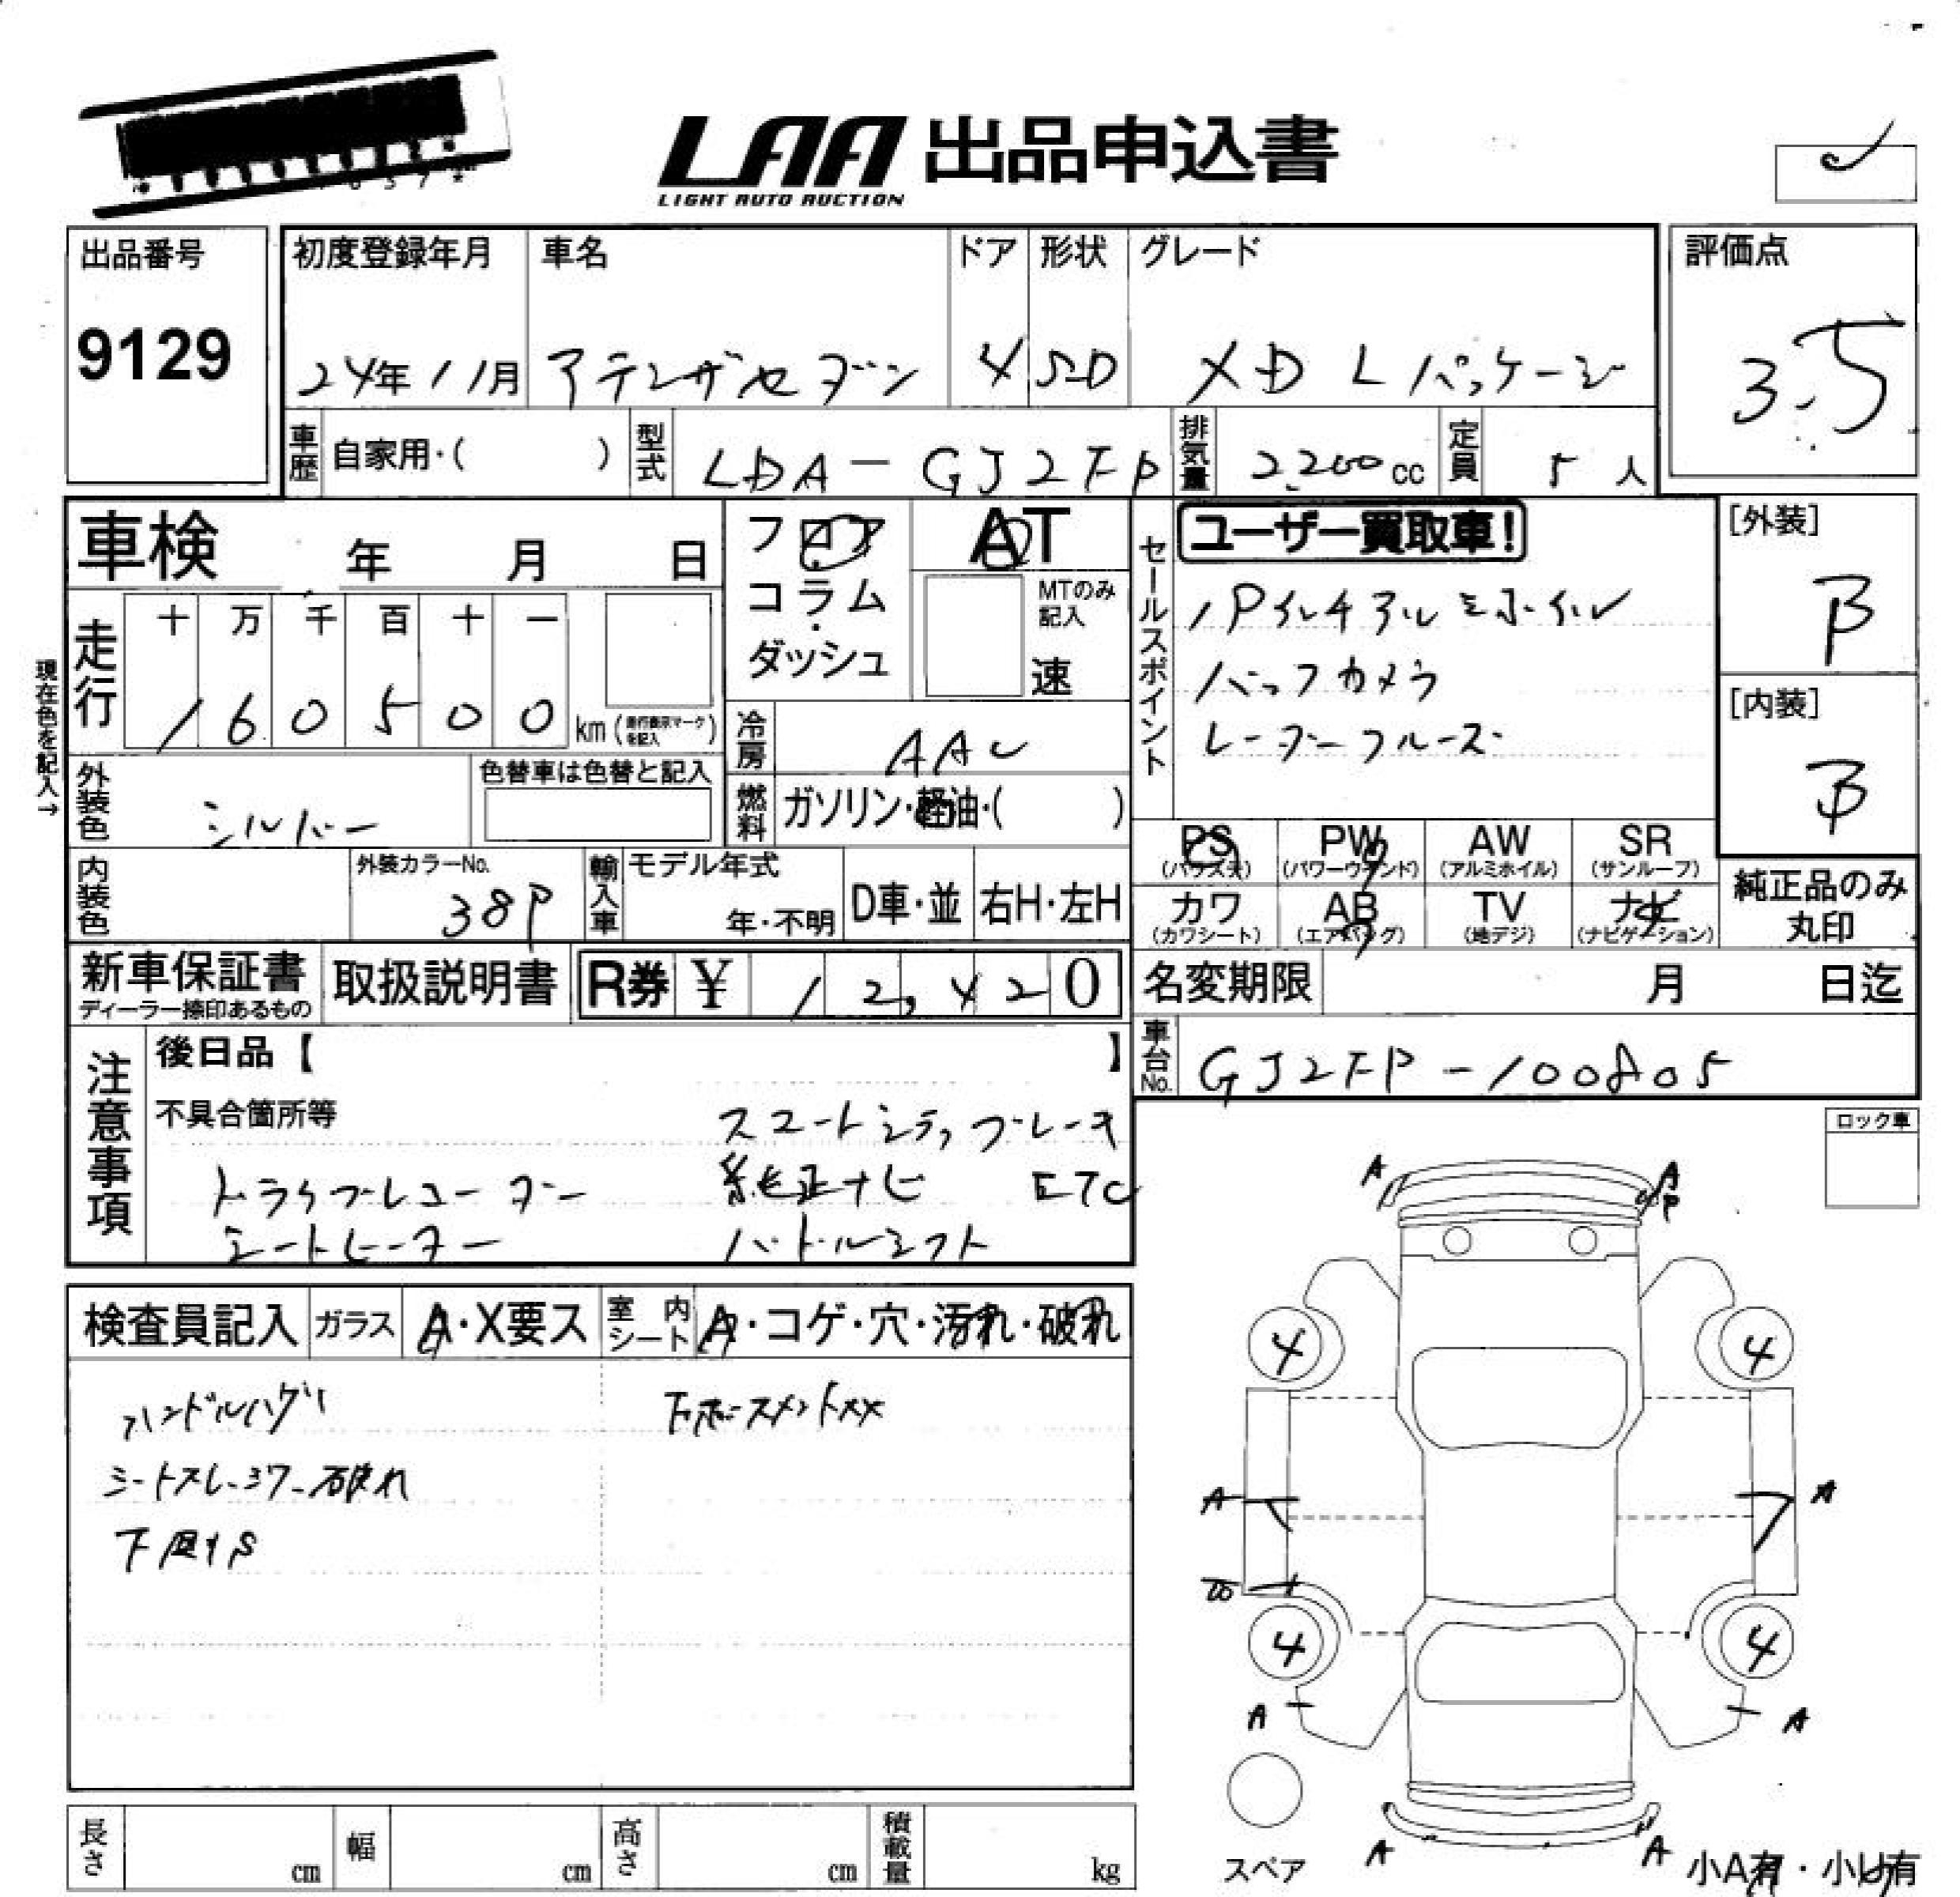 LAA 出品申込書
LIGHT AUTO AUCTION
出品番号
9129
初度登録年月
24年11月
車名
アテンザセダン
ドア
4
形状
SD
グレード
XD Lパッケージ
評価点
3.5
車歴 自家用・( )
型式 LDA-GJ2FP
排気量 2,200cc
定員 5人
車検 年 月 日
フロア
コラム
ダッシュ
AT
MTのみ記入
速
セールスポイント
ユーザー買取車!
バックカメラ
レーダークルーズ
[外装]
B
[内装]
B
現在色を記入→
走行
十 万 千 百 十 一
1 6 0 5 0 0 km (走行表示マークを記入)
冷房 AAC
燃料 ガソリン・軽油・( )
外装色 シルバー
色替車は色替と記入
内装色
外装カラーNo.
38P
輸入車 モデル年式
年・不明
D車・並
右H・左H
PS
(パワステ)
PW
(パワーウインド)
AW
(アルミホイル)
SR
(サンルーフ)
カワ
(カワシート)
AB
(エアバッグ)
TV
(地デジ)
ナビ
(ナビゲーション)
純正品のみ
丸印
新車保証書
ディーラー捺印あるもの
取扱説明書
R券 ¥ 12,420
名変期限 月 日迄
車台No. GJ2FP-100805
注意事項
後日品【 】
不具合箇所等
スマートシティブレーキ
ドライブレコーダー 純正ナビ ETC
シートヒーター パドルシフト
ロック車
検査員記入
ガラス A・X要ス
室内シート A・コゲ・穴・汚れ・破れ
ハンドルハゲ
シートスレ・シワ・破れ
下廻りS
A A
P
4 4
A A
B
4 4
A A
A A
スペア
小A有・小U有
長さ cm
幅 cm
高さ cm
積載量 kg